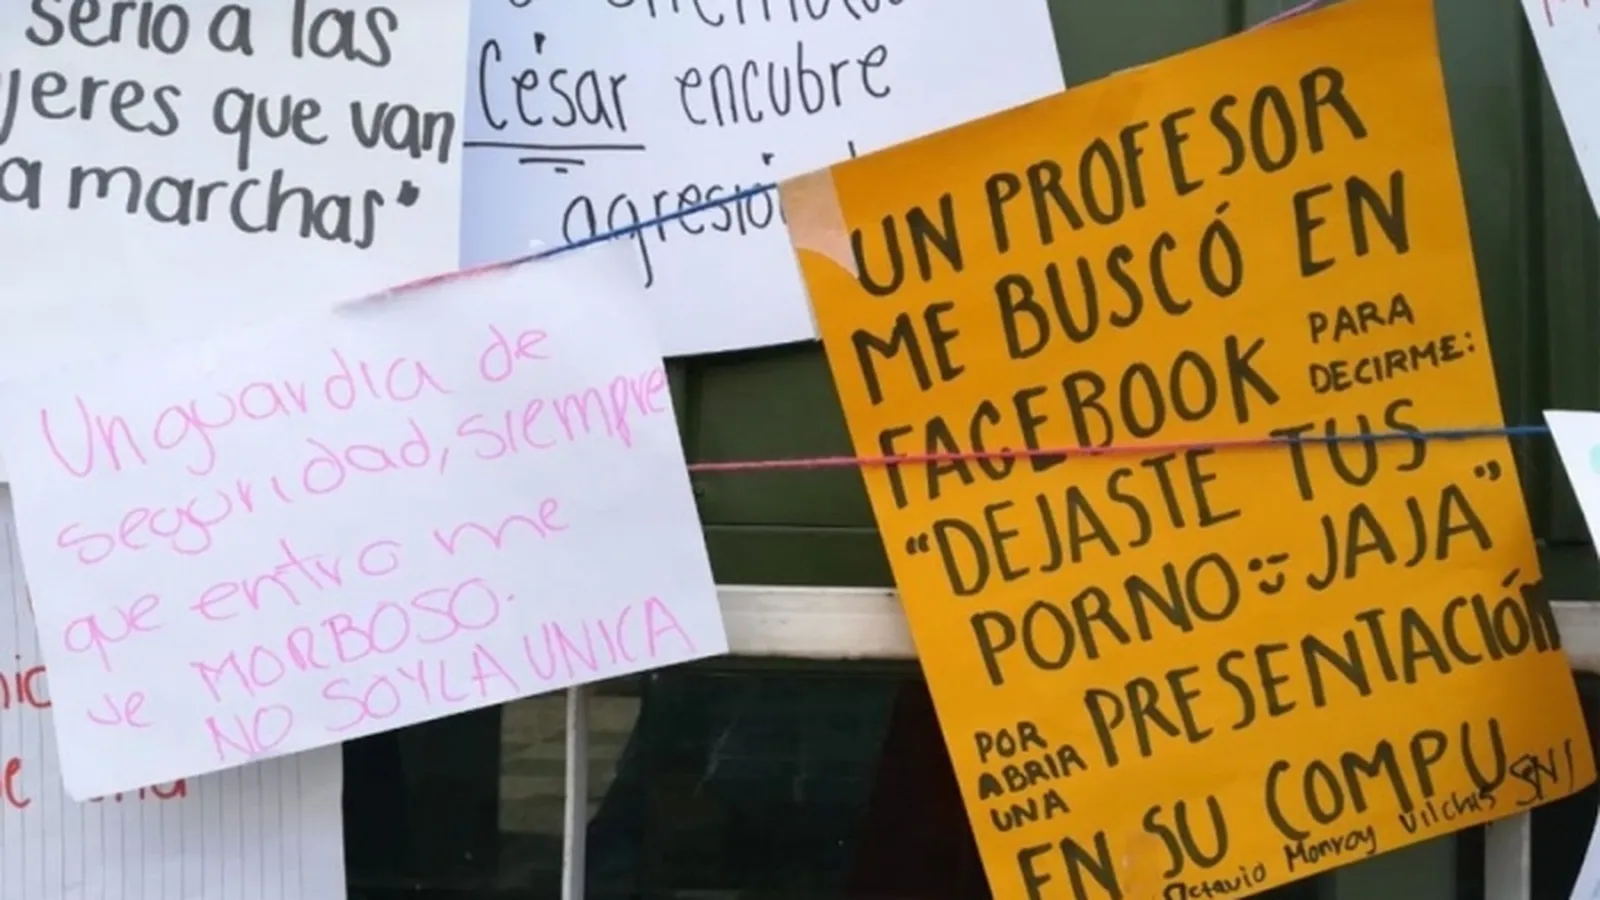 serio a las
jeres que van
a marchas"
César encubre
agresio
Un guardia de
seguridad, siempre
que entro me
ve MORBOSO.
NO SOY LA UNICA
UN PROFESOR
ME BUSCÓ EN
FACEBOOK PARA
DECIRME:
"DEJASTE TUS
PORNO :) JAJA"
POR ABRIR UNA PRESENTACIÓN
EN SU COMPU
Octavio Monroy Vilchis SNI